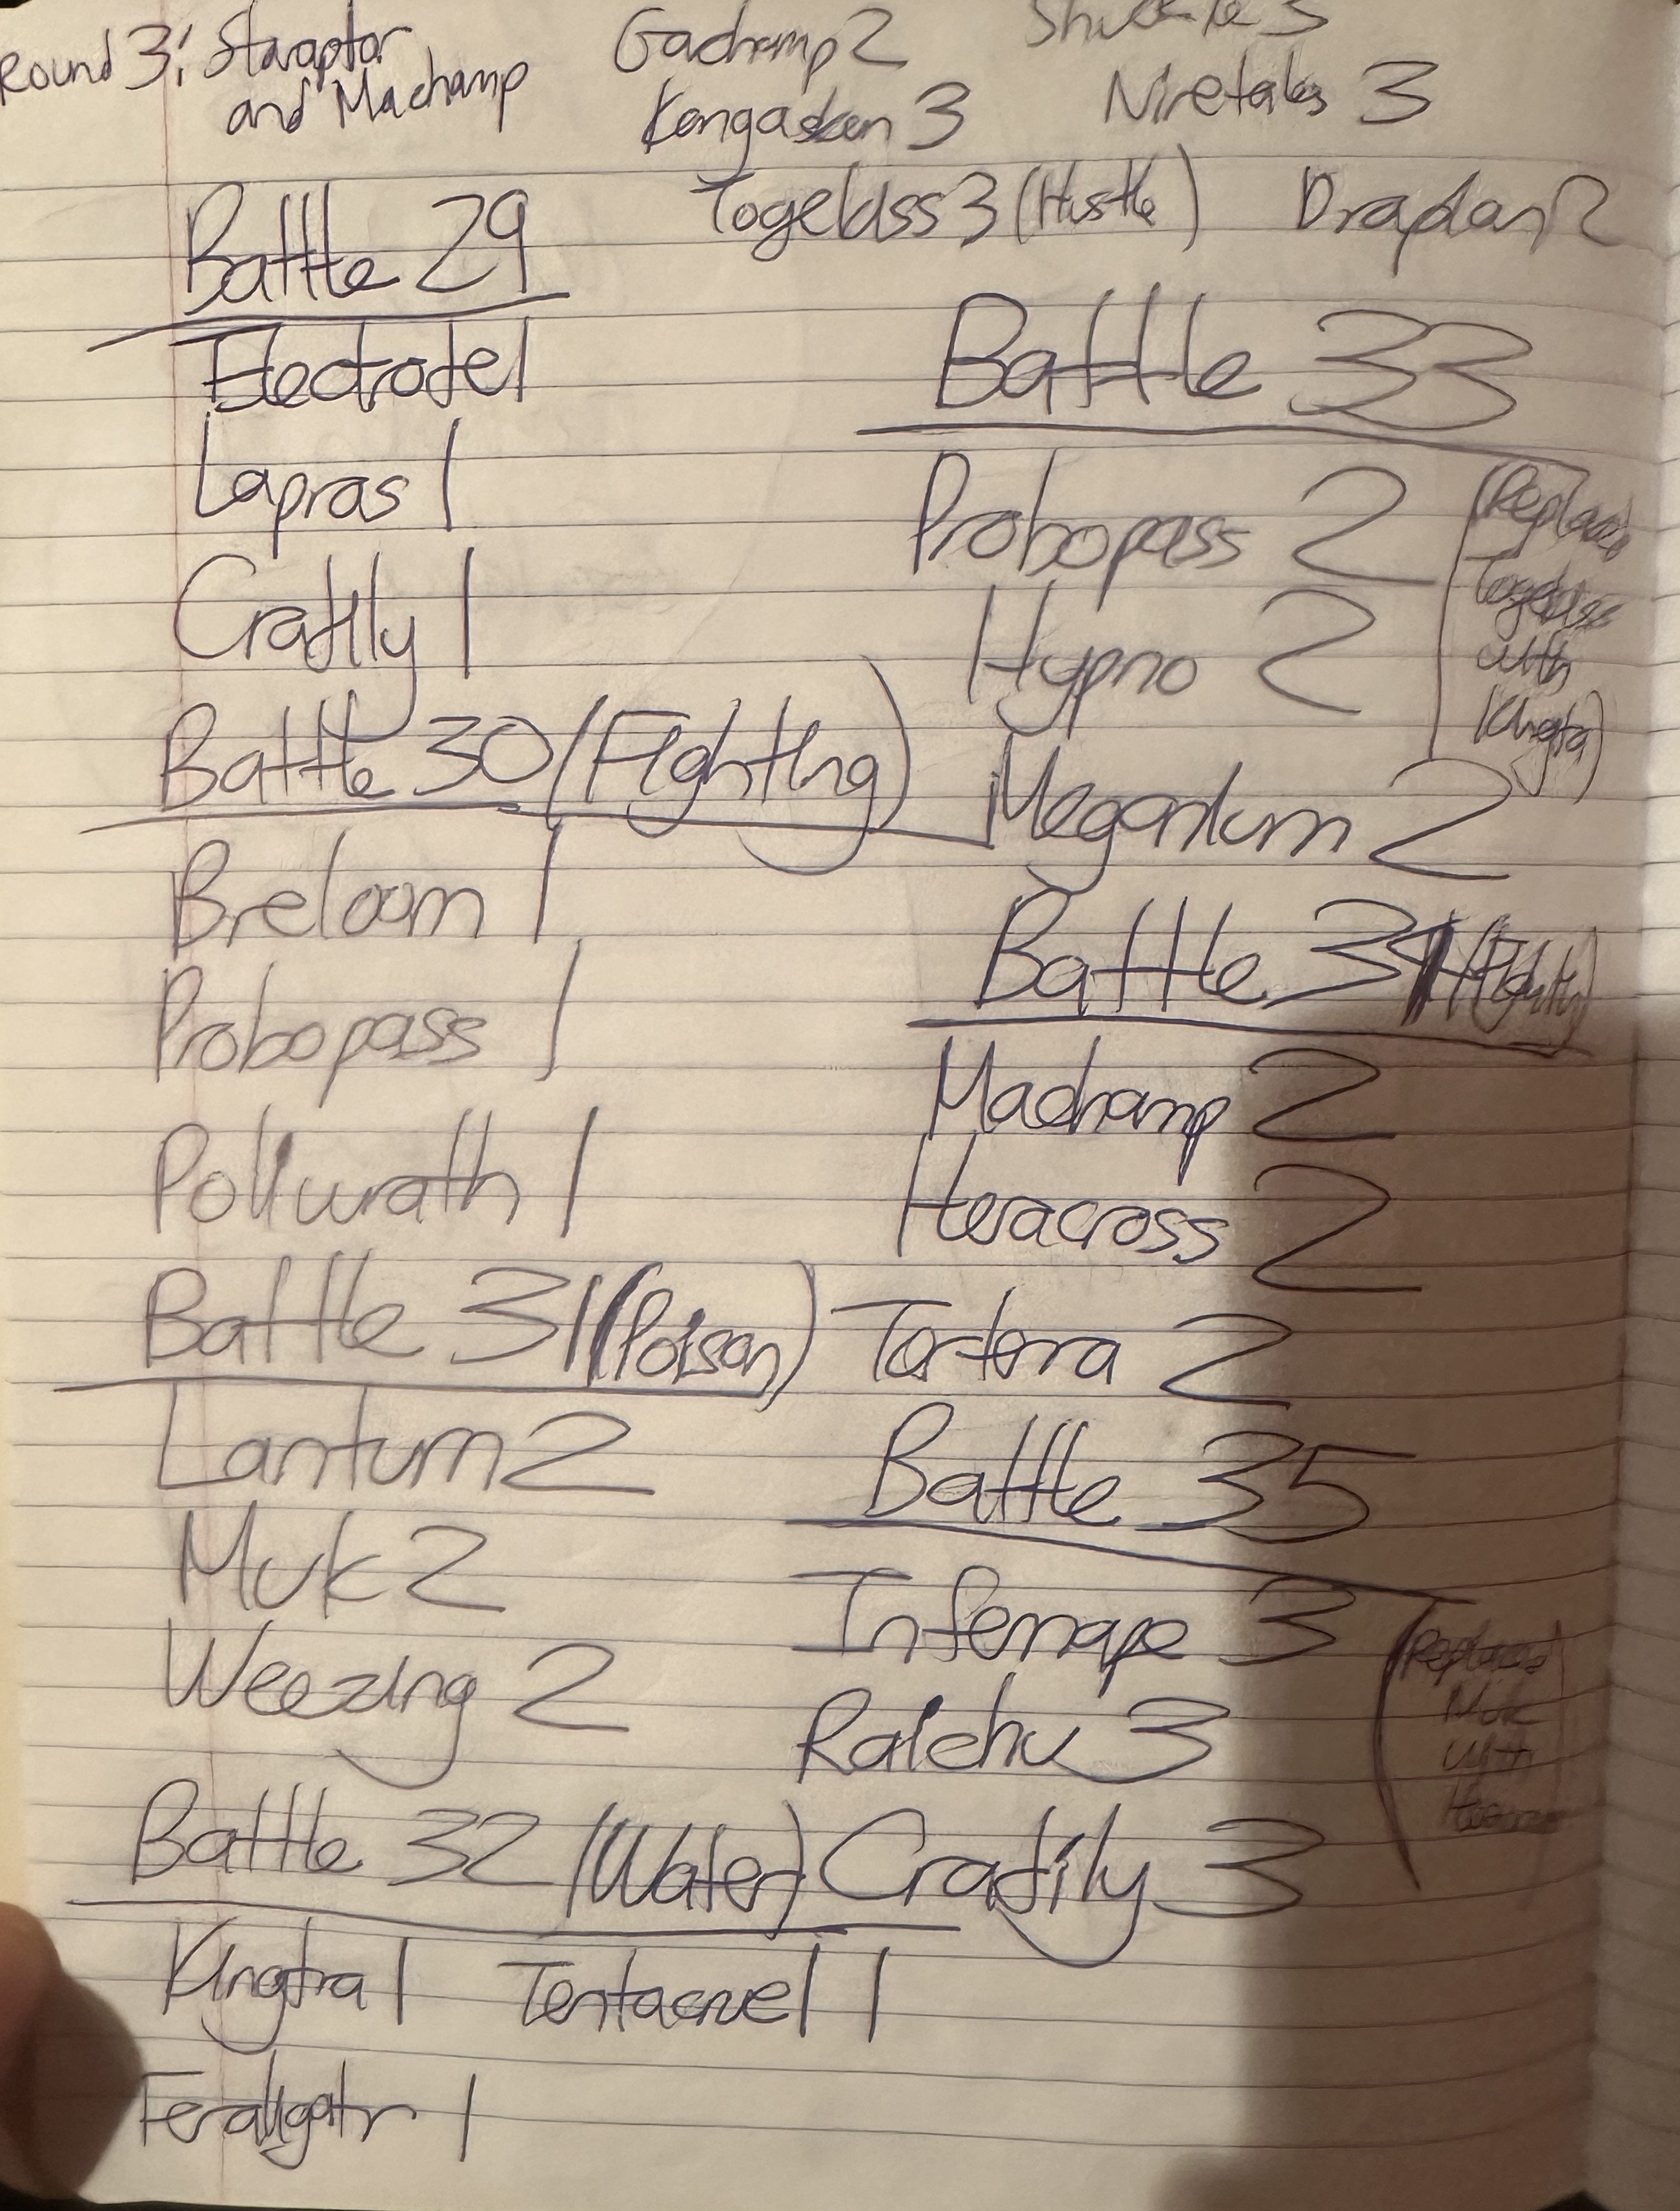 Round 3: Staraptor
and Machamp
Gachomp 2
Kangaskan 3
Shuckle 3
Ninetales 3
Togekiss 3 (Hustle)
Drapion 2
Battle 29
Electrode 1
Lapras 1
Cradily 1
Battle 30 (Fighting)
Breloom 1
Probopass 1
Poliwrath 1
Battle 31 (Poison)
Lanturn 2
Muk 2
Weezing 2
Battle 32 (Water)
Kingdra 1 Tentacruel 1
Feraligatr 1
Battle 33
Probopass 2
Hypno 2
Meganium 2
(Replaced
Togekiss
with
Kingdra)
Battle 34 (Fighting)
Machamp 2
Heracross 2
Torterra 2
Battle 35
Infernape 3
Raichu 3
Cradily 3
(Replaced
Muk
with